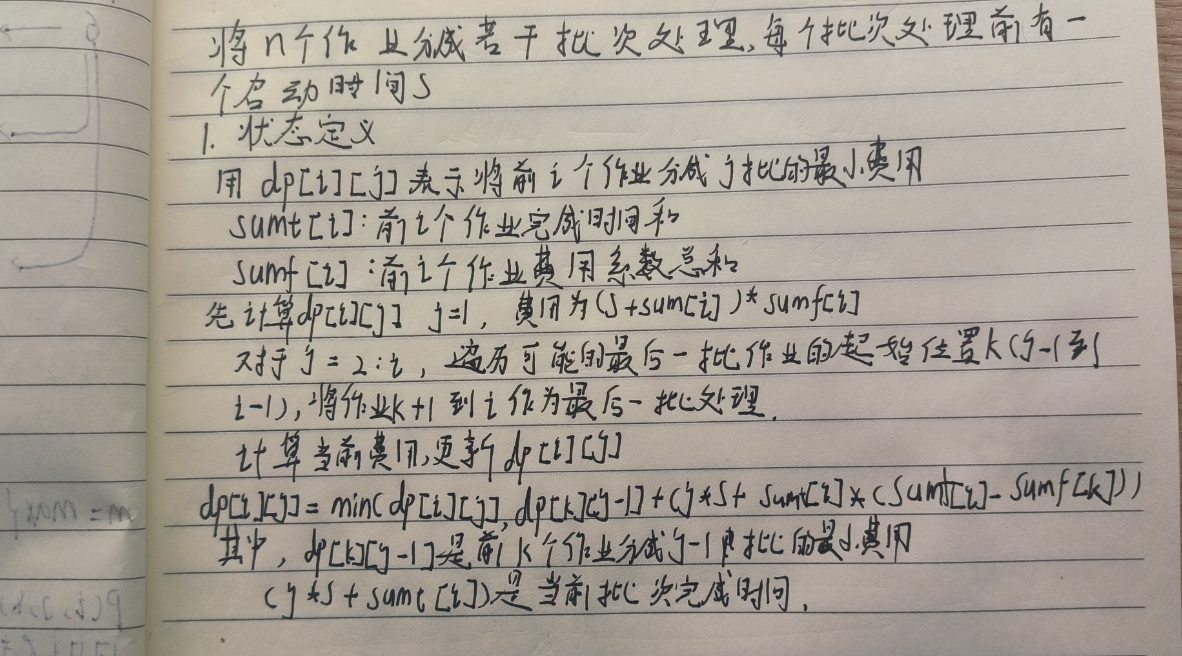 将n个作业分成若干批次处理,每个批次处理前有一
个启动时间S
1. 状态定义
用 dp[i][j] 表示将前i个作业分成j批的最小费用
sumt[i]:前i个作业完成时间和
sumf[i]:前i个作业费用系数总和
先计算dp[i][j] j=1, 费用为(S+sum[i])*sumf[i]
对于j=2:i, 遍历可能的最后一批作业的起始位置k(j-1到
i-1),将作业k+1到i作为最后一批处理.
计算当前费用,更新dp[i][j]
dp[i][j]=min(dp[i][j],dp[k][j-1]+(j*S+sumt[i]*(sumf[i]-sumf[k]))
其中, dp[k][j-1]是前k个作业分成j-1批的最小费用
(j*S+sumt[i])是当前批次完成时间.
m=max{